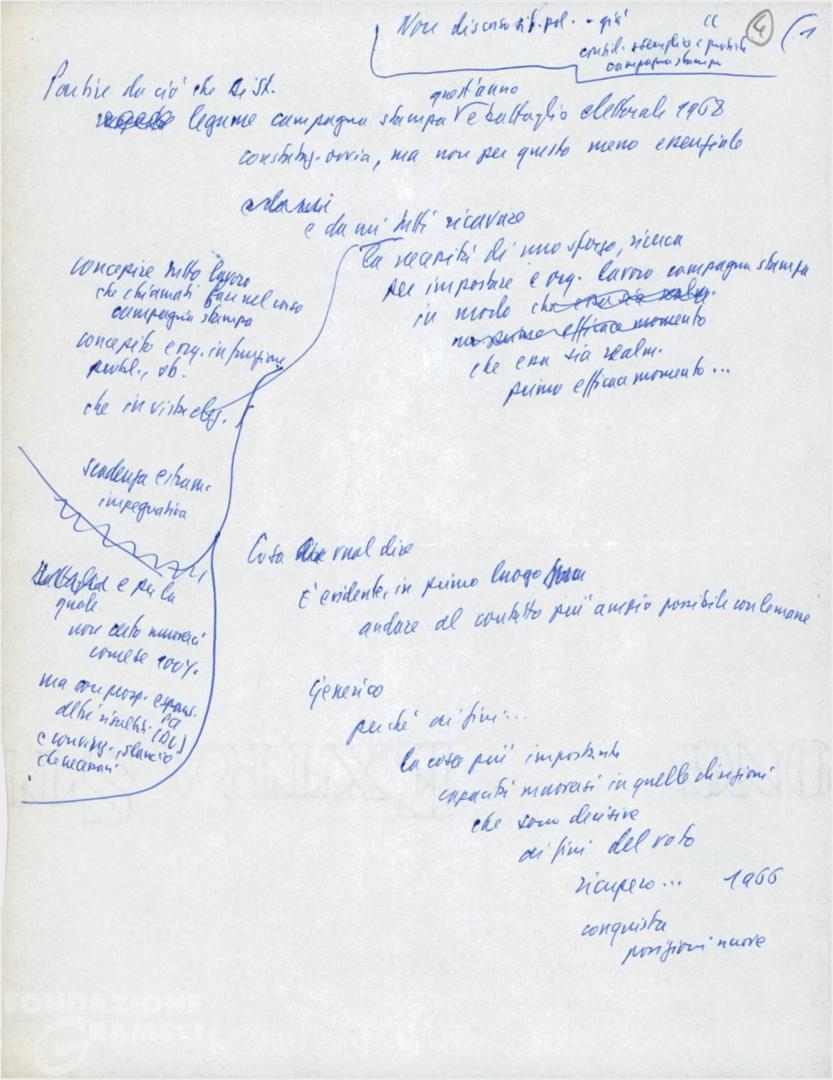 Non discorso sit. pol. - già CC
4
(1
consid. semplici e pratiche
campagna stampa
Partire da ciò che esist.
quest'anno
legame campagna stampa e battaglia elettorale 1968
constataz. ovvia, ma non per questo meno essenziale
e da cui tutti ricavare
la necessità di uno sforzo, ricerca
per impostare e org. lavoro campagna stampa
in modo che essa sia realm.
un primo efficace momento
che essa sia realm.
primo efficace momento...
concepire tutto lavoro
che chiamati fare nel corso
campagna stampa
concepito e org. in funzione
probl., ob.
che in vista elez.
scadenza estram.
impegnativa
battaglia e per la
quale
non certo muoverci
come se 100%.
ma con prosp. espans.
altri risultati PCI
(DC)
e convinz., slancio
che necessari
Cosa vuol dire
È evidente, in primo luogo
andare al contatto più ampio possibile con le masse
Generico
perché ai fini...
la cosa più importante
capacità muoversi in quelle direzioni
che sono decisive
ai fini del voto
ricupero... 1966
conquista
posizioni nuove
FONDAZIONE
GRAMSCI